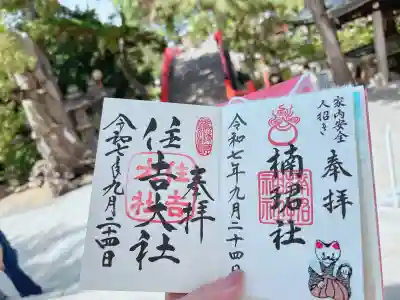 奉拝
家内安全
人招き
楠珺社
令和七年九月二十四日
奉拝
住吉大社
住吉大社
令和七年九月二十四日